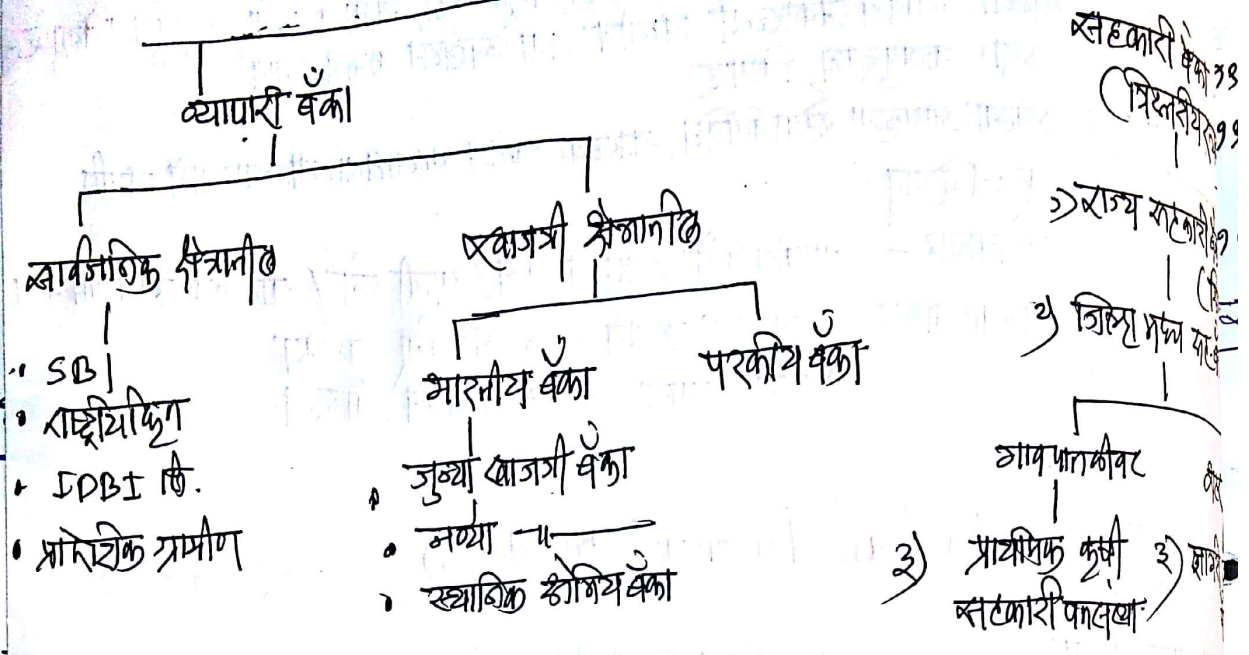 व्यापारी बँका
सार्वजनिक क्षेत्रातील
• SBI
• राष्ट्रीयिकृत
• IDBI लि.
• प्रादेशिक ग्रामीण
खाजगी क्षेत्रातील
भारतीय बँका
• जुन्या खाजगी बँका
• नव्या —"—
• स्थानिक क्षेत्रिय बँका
परकीय बँका
सहकारी बँका
(त्रिस्तरीय
१) राज्य सहकारी
२) जिल्हा मध्य सह.
गावपातळीवर
३) प्राथमिक कृषी
सहकारी पतसंस्था
३)